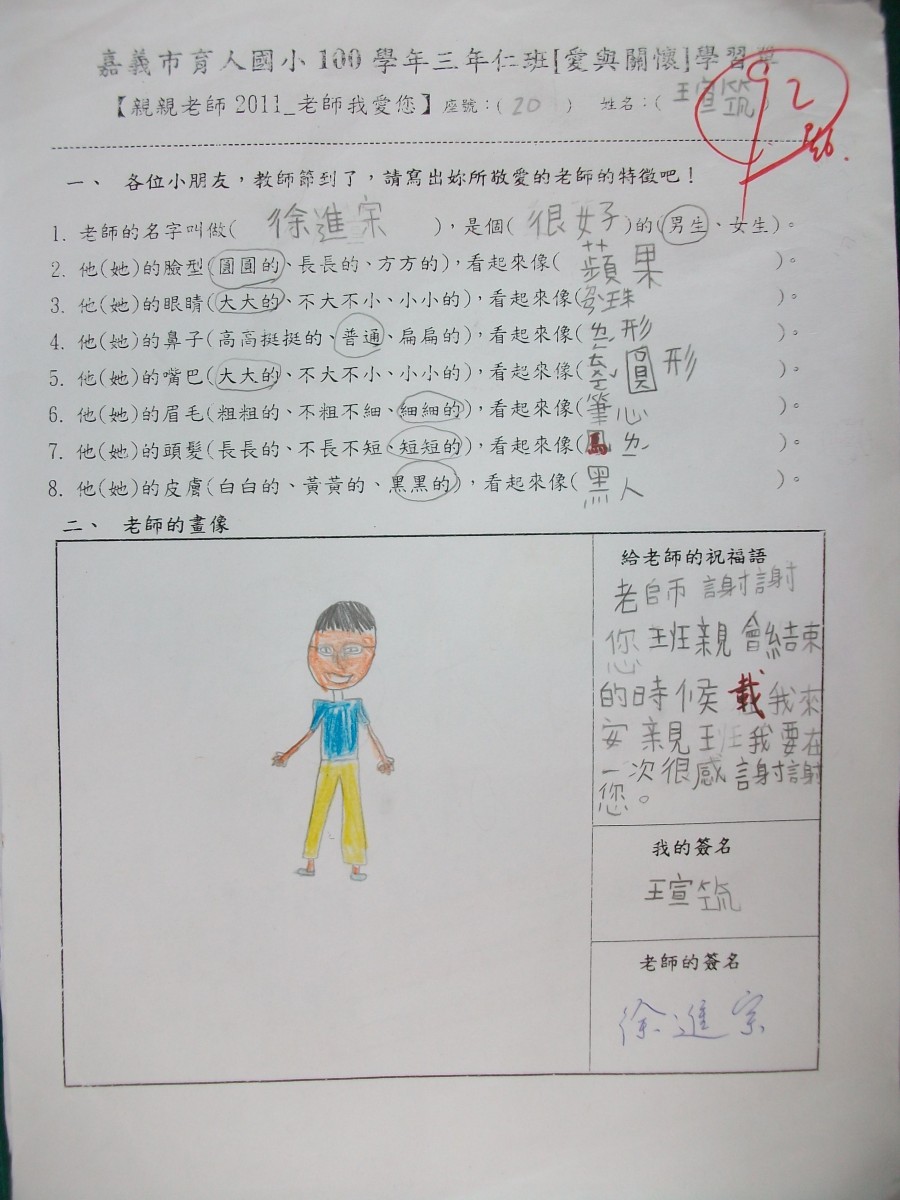 嘉義市育人國小100學年三年仁班[愛與關懷]學習單
【親親老師2011_老師我愛您】座號：( 20 ) 姓名：( 王宣筑 )
92
一、 各位小朋友，教師節到了，請寫出妳所敬愛的老師的特徵吧！
1. 老師的名字叫做( 徐進宗 )，是個( 很好 )的(男生、女生)。
2. 他(她)的臉型(圓圓的、長長的、方方的)，看起來像( 蘋果 )。
3. 他(她)的眼睛(大大的、不大不小、小小的)，看起來像( 珠 )。
4. 他(她)的鼻子(高高挺挺的、普通、扁扁的)，看起來像( 形 )。
5. 他(她)的嘴巴(大大的、不大不小、小小的)，看起來像( 圓形 )。
6. 他(她)的眉毛(粗粗的、不粗不細、細細的)，看起來像( 筆心 )。
7. 他(她)的頭髮(長長的、不長不短、短短的)，看起來像( )。
8. 他(她)的皮膚(白白的、黃黃的、黑黑的)，看起來像( 黑人 )。
二、 老師的畫像
給老師的祝福語
老師謝謝
您班親會結束
的時候載我來
安親班我要在
一次很感謝謝
您。
我的簽名
王宣
老師的簽名
徐進宗